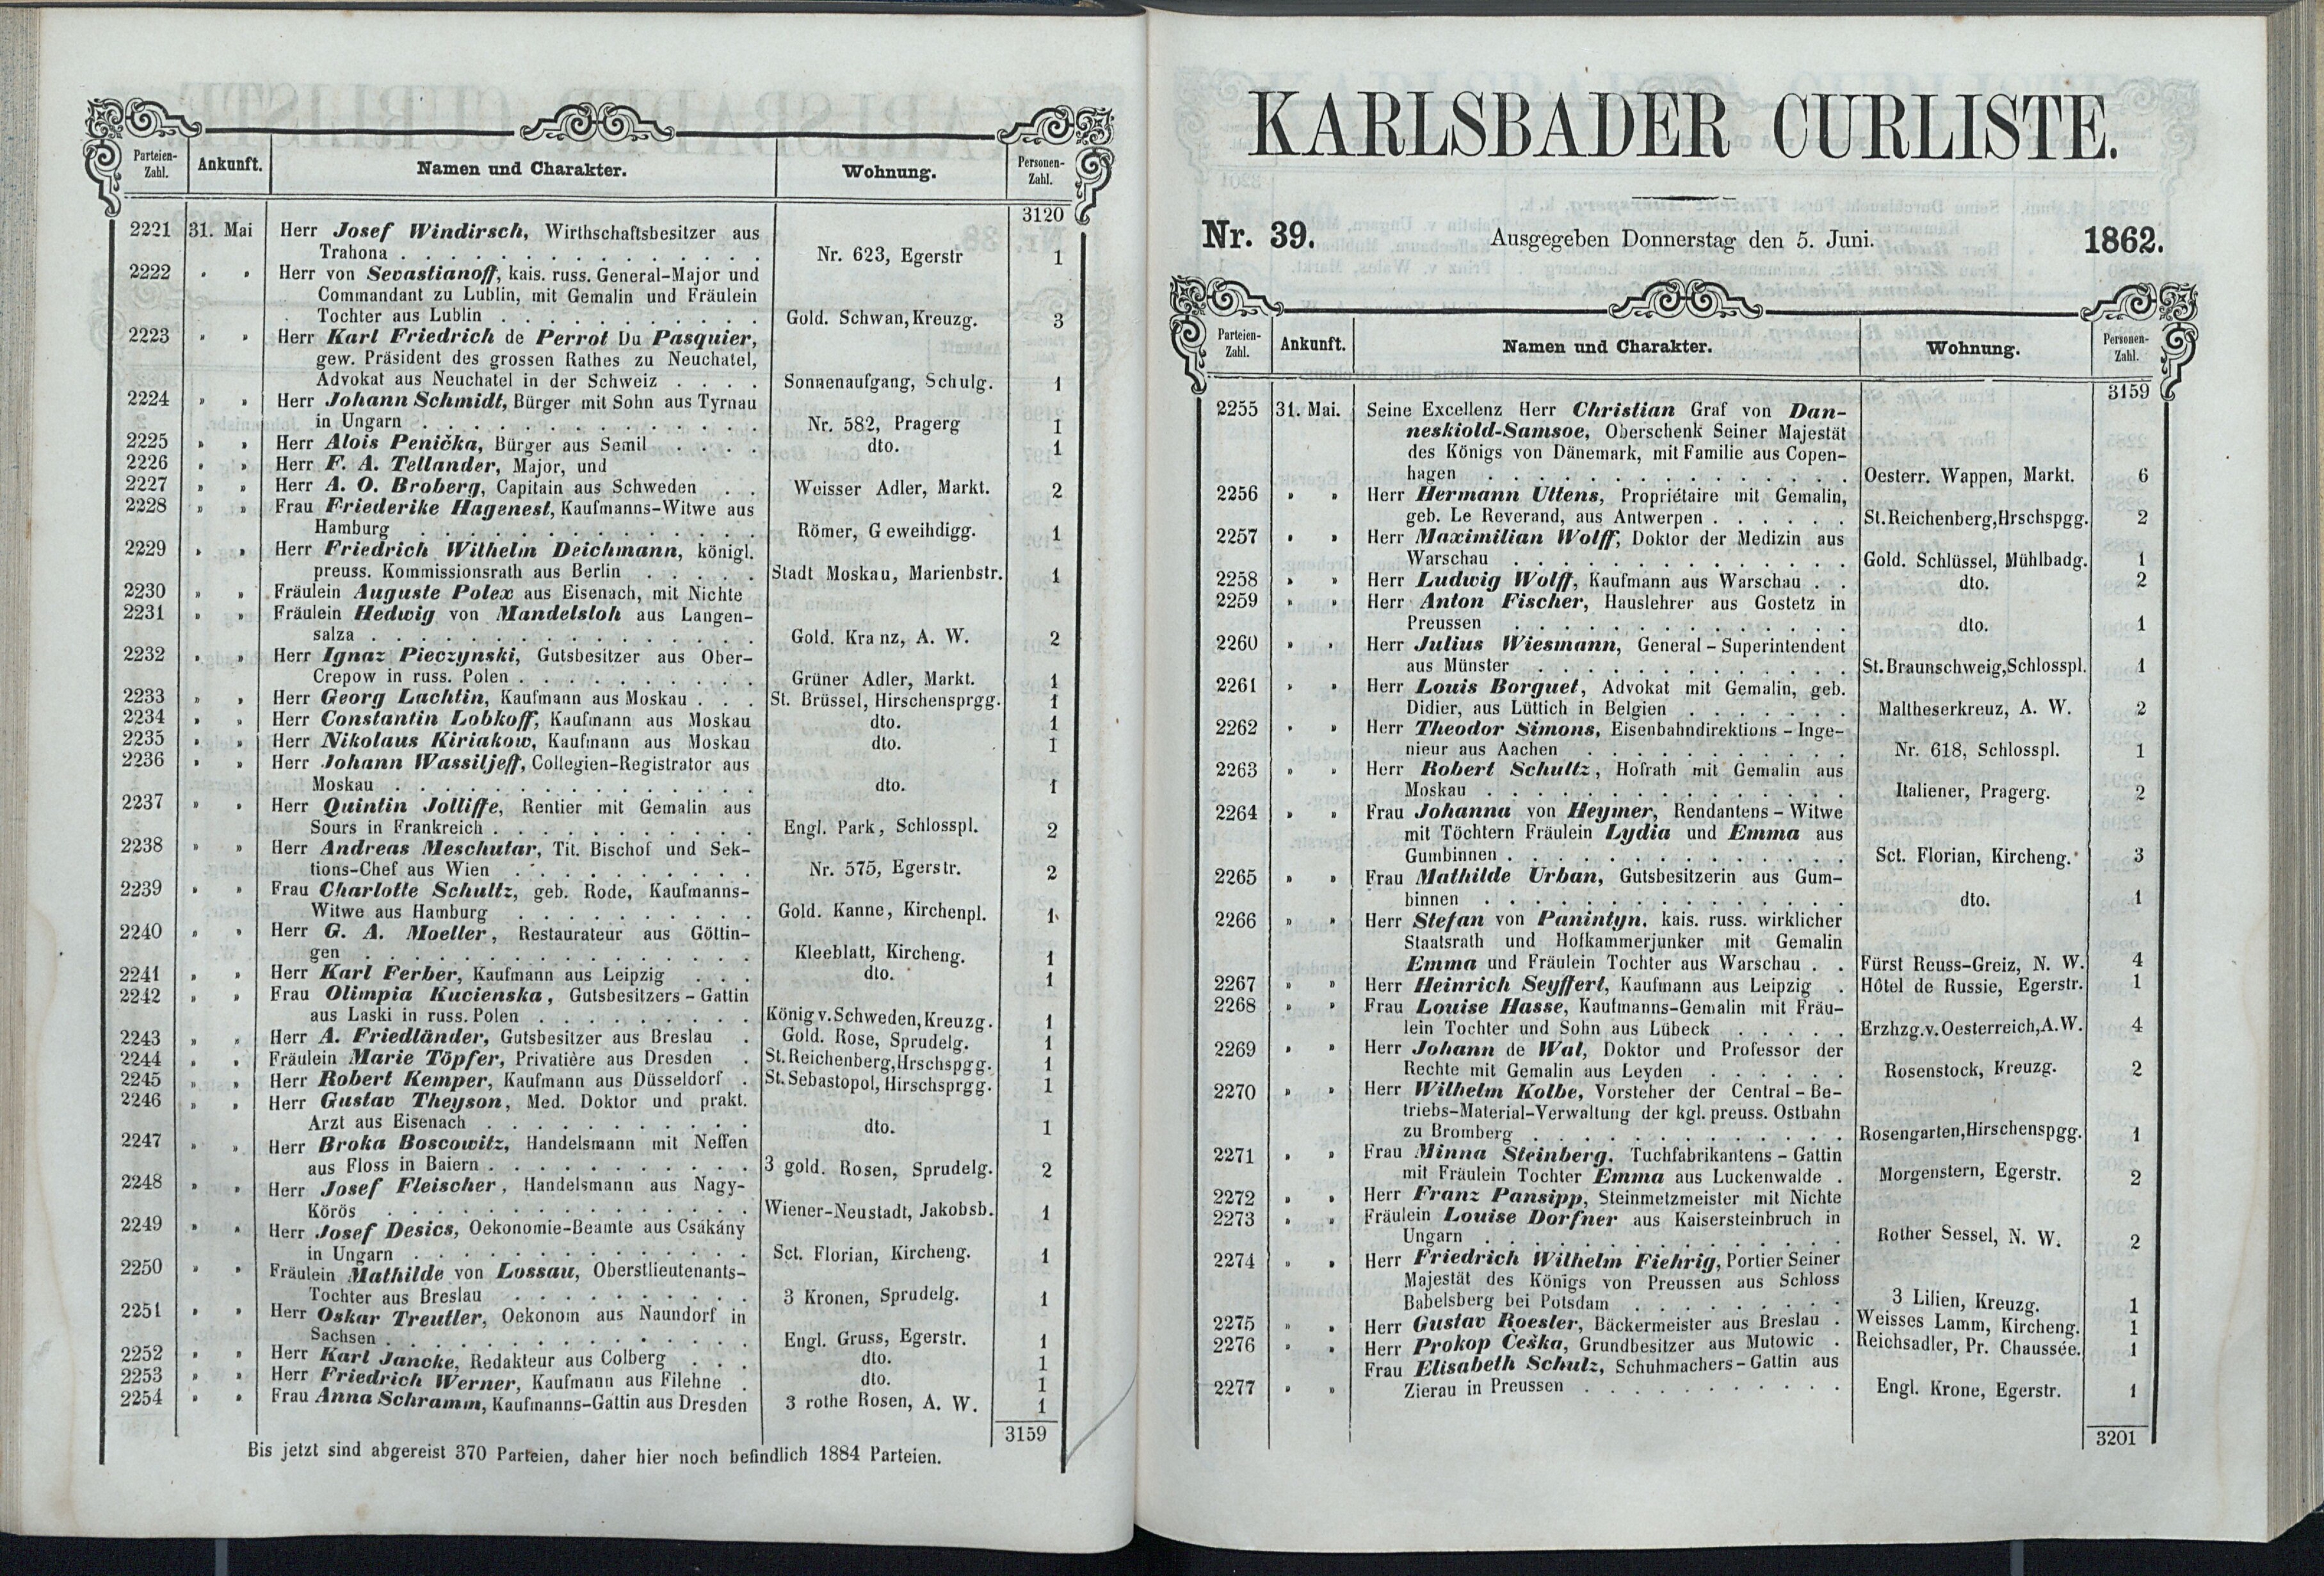 Parteien-Zahl. Ankunft. Namen und Charakter. Wohnung. Personen-Zahl.
3120
2221 31. Mai Herr Josef Windirsch, Wirthschaftsbesitzer aus
Trahona . . . Nr. 623, Egerstr 1
2222 " " Herr von Sevastianoff, kais. russ. General-Major und
Commandant zu Lublin, mit Gemalin und Fräulein
Tochter aus Lublin . . . Gold. Schwan, Kreuzg. 3
2223 " " Herr Karl Friedrich de Perrot Du Pasquier,
gew. Präsident des grossen Rathes zu Neuchatel,
Advokat aus Neuchatel in der Schweiz . . . . Sonnenaufgang, Schulg. 1
2224 " " Herr Johann Schmidt, Bürger mit Sohn aus Tyrnau
in Ungarn . . . Nr. 582, Pragerg 1
2225 " " Herr Alois Penička, Bürger aus Semil . . . . dto. 1
2226 " " Herr F. A. Tellander, Major, und
2227 " " Herr A. O. Broberg, Capitain aus Schweden . . Weisser Adler, Markt. 2
2228 " " Frau Friederike Hagenest, Kaufmanns-Witwe aus
Hamburg . . . Römer, Geweihdigg. 1
2229 " " Herr Friedrich Wilhelm Deichmann, königl.
preuss. Kommissionsrath aus Berlin . . . . . Stadt Moskau, Marienbstr. 1
2230 " " Fräulein Auguste Polex aus Eisenach, mit Nichte
2231 " " Fräulein Hedwig von Mandelsloh aus Langen-
salza . . . Gold. Kranz, A. W. 2
2232 " " Herr Ignaz Pieczynski, Gutsbesitzer aus Ober-
Crepow in russ. Polen . . . Grüner Adler, Markt. 1
2233 " " Herr Georg Lachtin, Kaufmann aus Moskau . . . St. Brüssel, Hirschensprgg. 1
2234 " " Herr Constantin Lobkoff, Kaufmann aus Moskau dto. 1
2235 " " Herr Nikolaus Kiriakow, Kaufmann aus Moskau dto. 1
2236 " " Herr Johann Wassiljeff, Collegien-Registrator aus
Moskau . . . dto. 1
2237 " " Herr Quintin Jolliffe, Rentier mit Gemalin aus
Sours in Frankreich . . . Engl. Park, Schlosspl. 2
2238 " " Herr Andreas Meschutar, Tit. Bischof und Sek-
tions-Chef aus Wien . . . Nr. 575, Egerstr. 2
2239 " " Frau Charlotte Schultz, geb. Rode, Kaufmanns-
Witwe aus Hamburg . . . Gold. Kanne, Kirchenpl. 1
2240 " " Herr G. A. Moeller, Restaurateur aus Göttin-
gen . . . Kleeblatt, Kircheng. 1
2241 " " Herr Karl Ferber, Kaufmann aus Leipzig . . . dto. 1
2242 " " Frau Olimpia Kucienska, Gutsbesitzers-Gattin
aus Laski in russ. Polen . . . König v. Schweden, Kreuzg. 1
2243 " " Herr A. Friedländer, Gutsbesitzer aus Breslau . Gold. Rose, Sprudelg. 1
2244 " " Fräulein Marie Töpfer, Privatière aus Dresden . St. Reichenberg, Hrschspgg. 1
2245 " " Herr Robert Kemper, Kaufmann aus Düsseldorf . St. Sebastopol, Hirschsprgg. 1
2246 " " Herr Gustav Theyson, Med. Doktor und prakt.
Arzt aus Eisenach . . . dto. 1
2247 " " Herr Broka Boscowitz, Handelsmann mit Neffen
aus Floss in Baiern . . . 3 gold. Rosen, Sprudelg. 2
2248 " " Herr Josef Fleischer, Handelsmann aus Nagy-
Körös . . . Wiener-Neustadt, Jakobsb. 1
2249 " " Herr Josef Desics, Oekonomie-Beamte aus Csákány
in Ungarn . . . Sct. Florian, Kircheng. 1
2250 " " Fräulein Mathilde von Lossau, Oberstlieutenants-
Tochter aus Breslau . . . 3 Kronen, Sprudelg. 1
2251 " " Herr Oskar Treutler, Oekonom aus Naundorf in
Sachsen . . . Engl. Gruss, Egerstr. 1
2252 " " Herr Karl Jancke, Redakteur aus Colberg . . . dto. 1
2253 " " Herr Friedrich Werner, Kaufmann aus Filehne . dto. 1
2254 " " Frau Anna Schramm, Kaufmanns-Gattin aus Dresden 3 rothe Rosen, A. W. 1
3159
Bis jetzt sind abgereist 370 Parteien, daher hier noch befindlich 1884 Parteien.
KARLSBADER CURLISTE.
Nr. 39. Ausgegeben Donnerstag den 5. Juni. 1862.
Parteien-Zahl. Ankunft. Namen und Charakter. Wohnung. Personen-Zahl.
3159
2255 31. Mai. Seine Excellenz Herr Christian Graf von Dan-
neskiold-Samsoe, Oberschenk Seiner Majestät
des Königs von Dänemark, mit Familie aus Copen-
hagen . . . Oesterr. Wappen, Markt. 6
2256 " " Herr Hermann Uttens, Propriétaire mit Gemalin,
geb. Le Reverand, aus Antwerpen . . . St. Reichenberg, Hrschspgg. 2
2257 " " Herr Maximilian Wolff, Doktor der Medizin aus
Warschau . . . Gold. Schlüssel, Mühlbadg. 1
2258 " " Herr Ludwig Wolff, Kaufmann aus Warschau . . dto. 2
2259 " " Herr Anton Fischer, Hauslehrer aus Gostetz in
Preussen . . . dto. 1
2260 " " Herr Julius Wiesmann, General-Superintendent
aus Münster . . . St. Braunschweig, Schlosspl. 1
2261 " " Herr Louis Borguet, Advokat mit Gemalin, geb.
Didier, aus Lüttich in Belgien . . . Maltheserkreuz, A. W. 2
2262 " " Herr Theodor Simons, Eisenbahndirektions-Inge-
nieur aus Aachen . . . Nr. 618, Schlosspl. 1
2263 " " Herr Robert Schultz, Hofrath mit Gemalin aus
Moskau . . . Italiener, Pragerg. 2
2264 " " Frau Johanna von Heymer, Rendantens-Witwe
mit Töchtern Fräulein Lydia und Emma aus
Gumbinnen . . . Sct. Florian, Kircheng. 3
2265 " " Frau Mathilde Urban, Gutsbesitzerin aus Gum-
binnen . . . dto. 1
2266 " " Herr Stefan von Panintyn, kais. russ. wirklicher
Staatsrath und Hofkammerjunker mit Gemalin
Emma und Fräulein Tochter aus Warschau . . Fürst Reuss-Greiz, N. W. 4
2267 " " Herr Heinrich Seyffert, Kaufmann aus Leipzig . Hôtel de Russie, Egerstr. 1
2268 " " Frau Louise Hasse, Kaufmanns-Gemalin mit Fräu-
lein Tochter und Sohn aus Lübeck . . . . . Erzhzg. v. Oesterreich, A. W. 4
2269 " " Herr Johann de Wal, Doktor und Professor der
Rechte mit Gemalin aus Leyden . . . Rosenstock, Kreuzg. 2
2270 " " Herr Wilhelm Kolbe, Vorsteher der Central-Be-
triebs-Material-Verwaltung der kgl. preuss. Ostbahn
zu Bromberg . . . Rosengarten, Hirschenspgg. 1
2271 " " Frau Minna Steinberg, Tuchfabrikantens-Gattin
mit Fräulein Tochter Emma aus Luckenwalde . Morgenstern, Egerstr. 2
2272 " " Herr Franz Pansipp, Steinmetzmeister mit Nichte
2273 " " Fräulein Louise Dorfner aus Kaisersteinbruch in
Ungarn . . . Rother Sessel, N. W. 2
2274 " " Herr Friedrich Wilhelm Fiehrig, Portier Seiner
Majestät des Königs von Preussen aus Schloss
Babelsberg bei Potsdam . . . 3 Lilien, Kreuzg. 1
2275 " " Herr Gustav Roesler, Bäckermeister aus Breslau . Weisses Lamm, Kircheng. 1
2276 " " Herr Prokop Češka, Grundbesitzer aus Mutowic . Reichsadler, Pr. Chaussée. 1
Frau Elisabeth Schulz, Schuhmachers-Gattin aus
2277 " " Zierau in Preussen . . . Engl. Krone, Egerstr. 1
3201